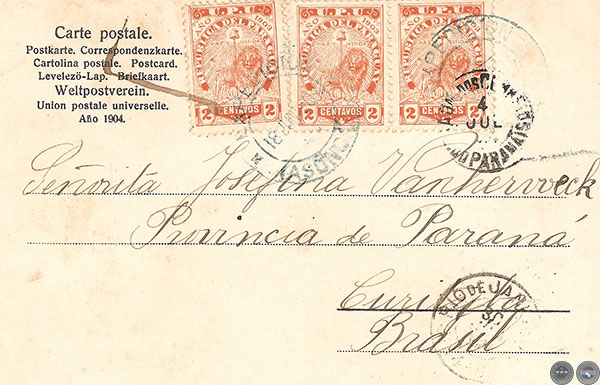 Carte postale.
Postkarte. Correspondenzkarte.
Cartolina postale. Postcard.
Levelezö-Lap. Briefkaart.
Weltpostverein.
Union postale universelle.
Año 1904.
REPUBLICA DEL PARAGUAY
2 CENTAVOS 2
REPUBLICA DEL PARAGUAY
2 CENTAVOS 2
REPUBLICA DEL PARAGUAY
2 CENTAVOS 2
18
4
JUL
Señorita Josefina Vanherweck
Provincia de Paraná
Curityba
Brasil
RIO DE JAN